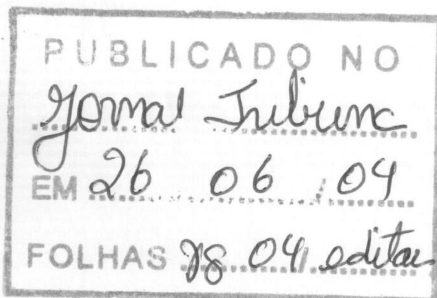 PUBLICADO NO
Jornal Tribuna
EM 26 06 / 04
FOLHAS 04 editais